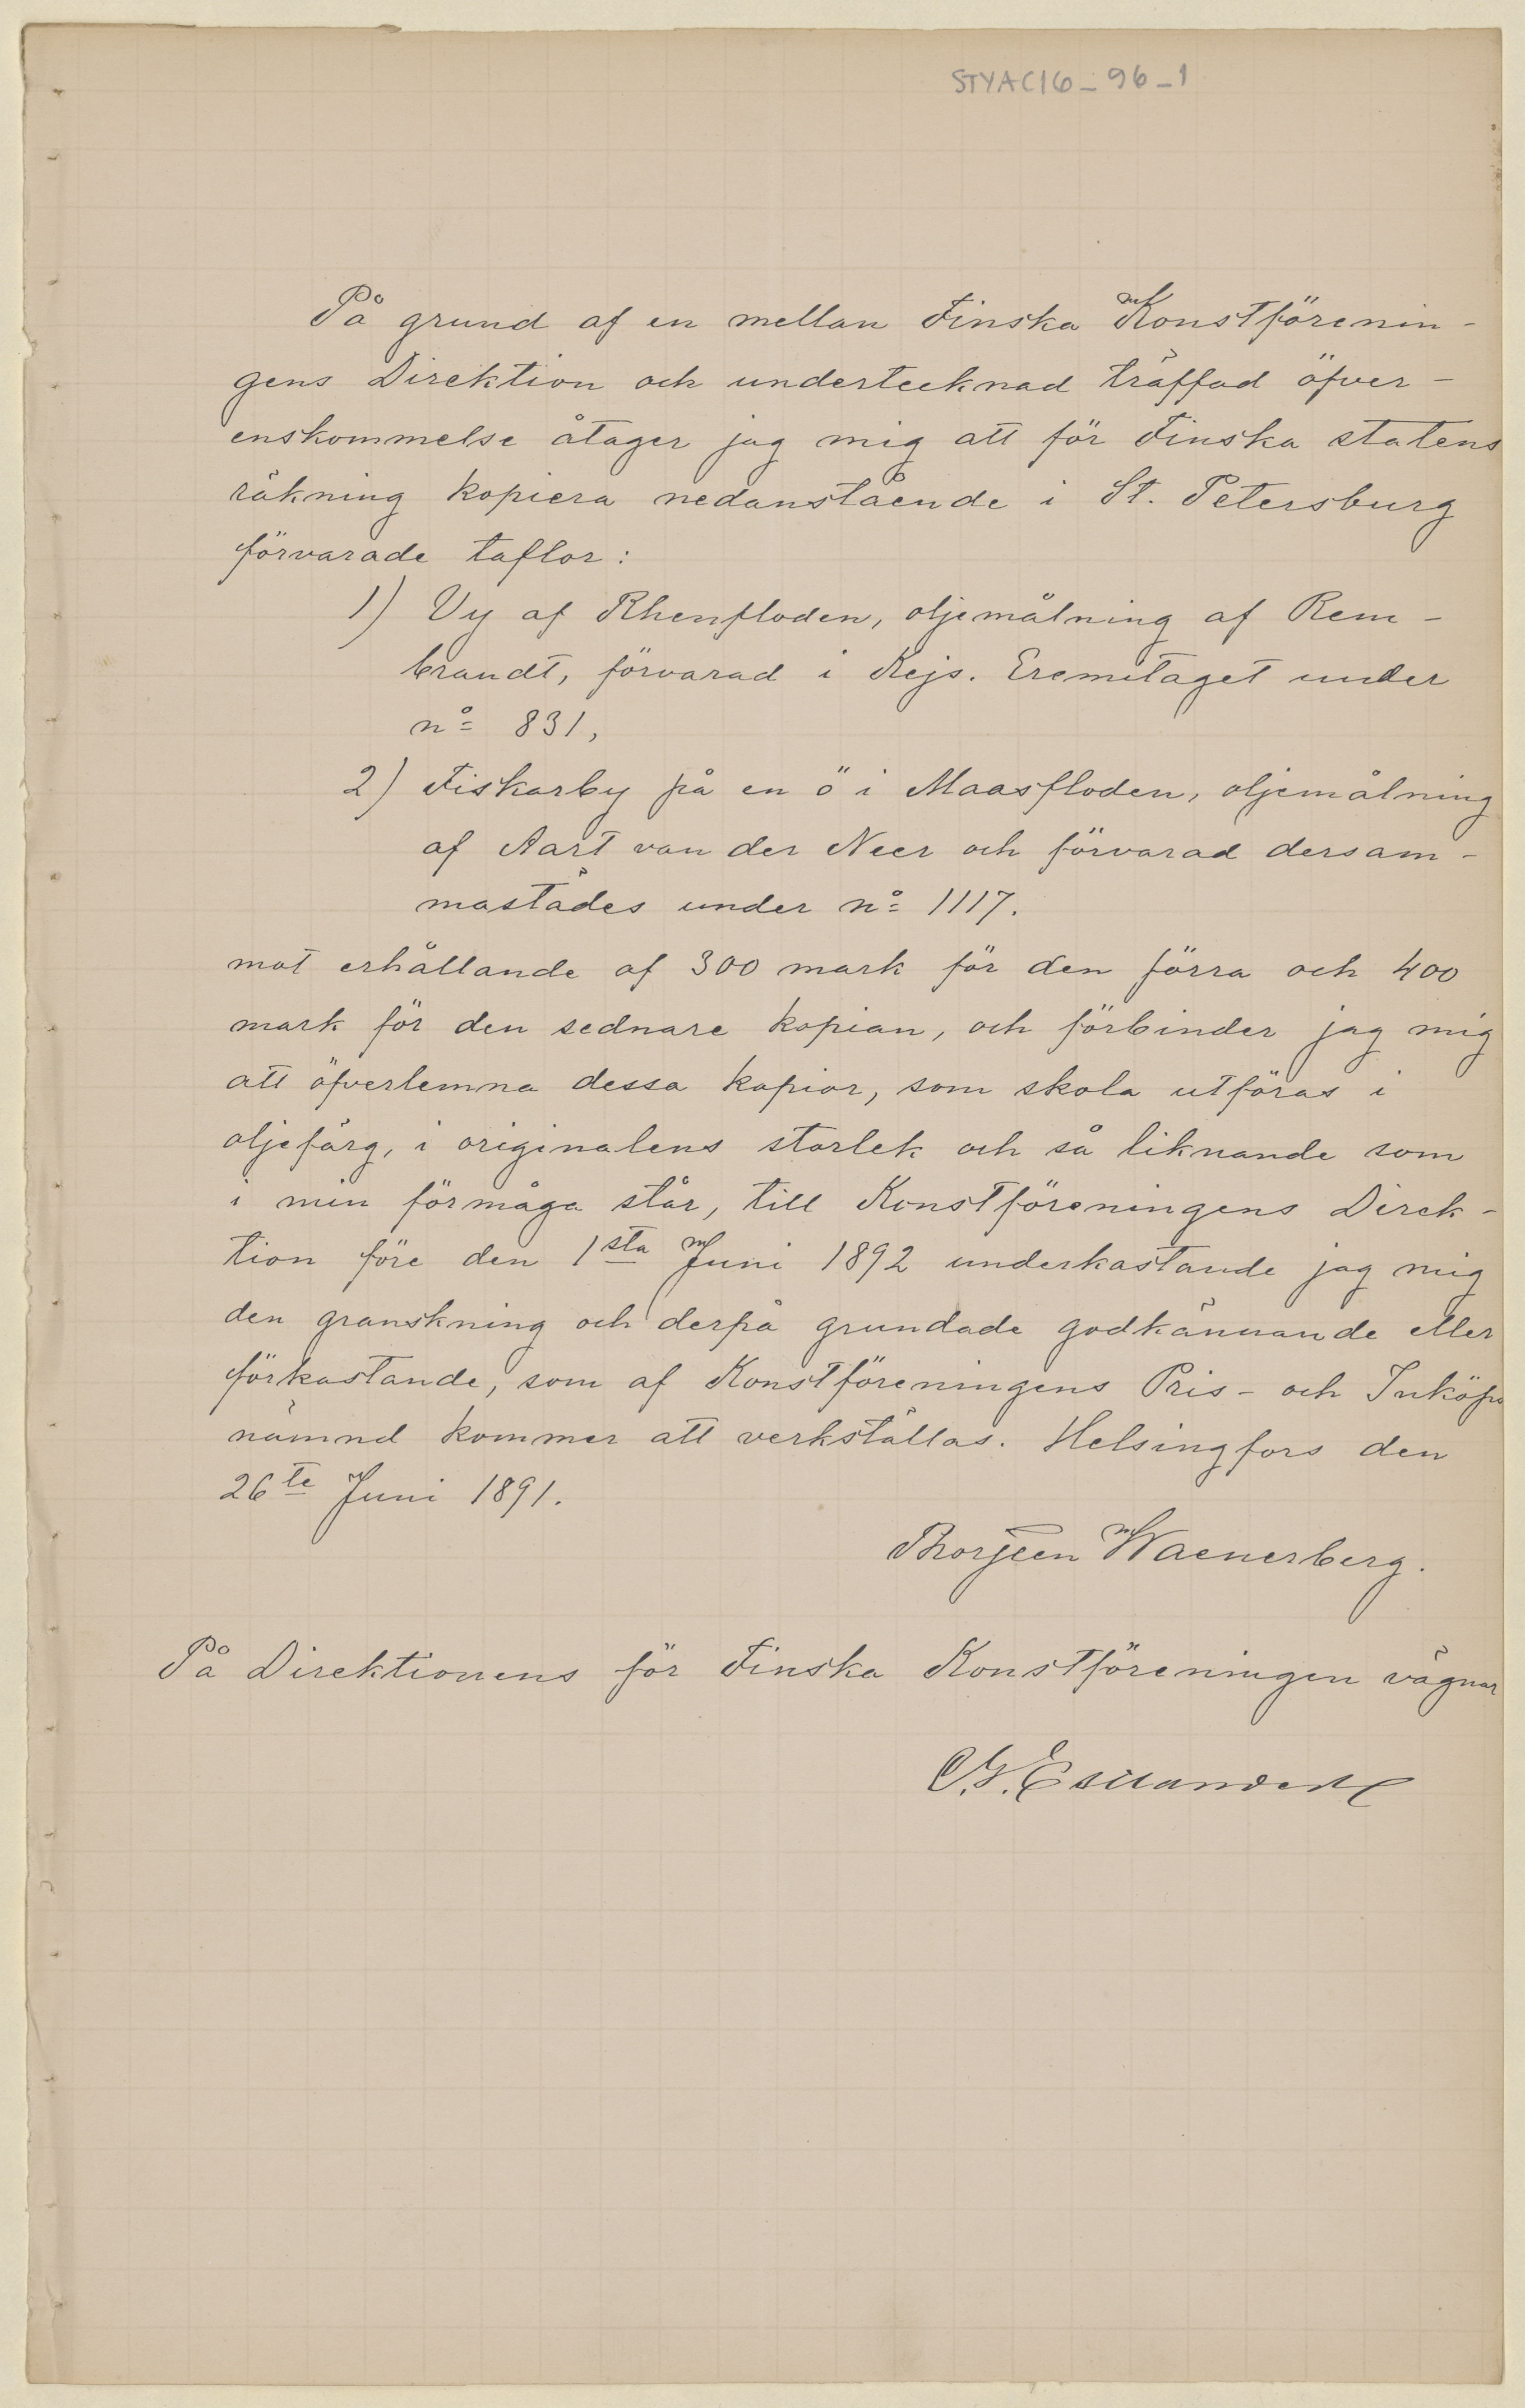 STYAC16_96_1
På grund af en mellan Finska Konstförenin-
gens Direktion och undertecknad träffad öfver-
enskommelse åtager jag mig att för Finska statens
räkning kopiera nedanstående i St. Petersburg
förvarade taflor:
1) Vy af Rhenfloden, oljemålning af Rem-
brandt, förvarad i Kejs. Eremitaget under
nº 831,
2) Fiskarby på en ö i Maasfloden, oljemålning
af Aart van der Neer och förvarad dersam-
mastädes under nº 1117.
mot erhållande af 300 mark för den förra och 400
mark för den sednare kopian, och förbinder jag mig
att öfverlemna dessa kopior, som skola utföras i
oljefärg, i originalens storlek och så liknande som
i min förmåga står, till Konstföreningens Direk-
tion före den 1sta Juni 1892 underkastande jag mig
den granskning och derpå grundade godkännande eller
förkastande, som af Konstföreningens Pris- och Inköps
nämnd kommer att verkställas. Helsingfors den
26te Juni 1891.
Thorsten Waenerberg.
På Direktionens för Finska Konstföreningen vägnar
C.G. Estlander